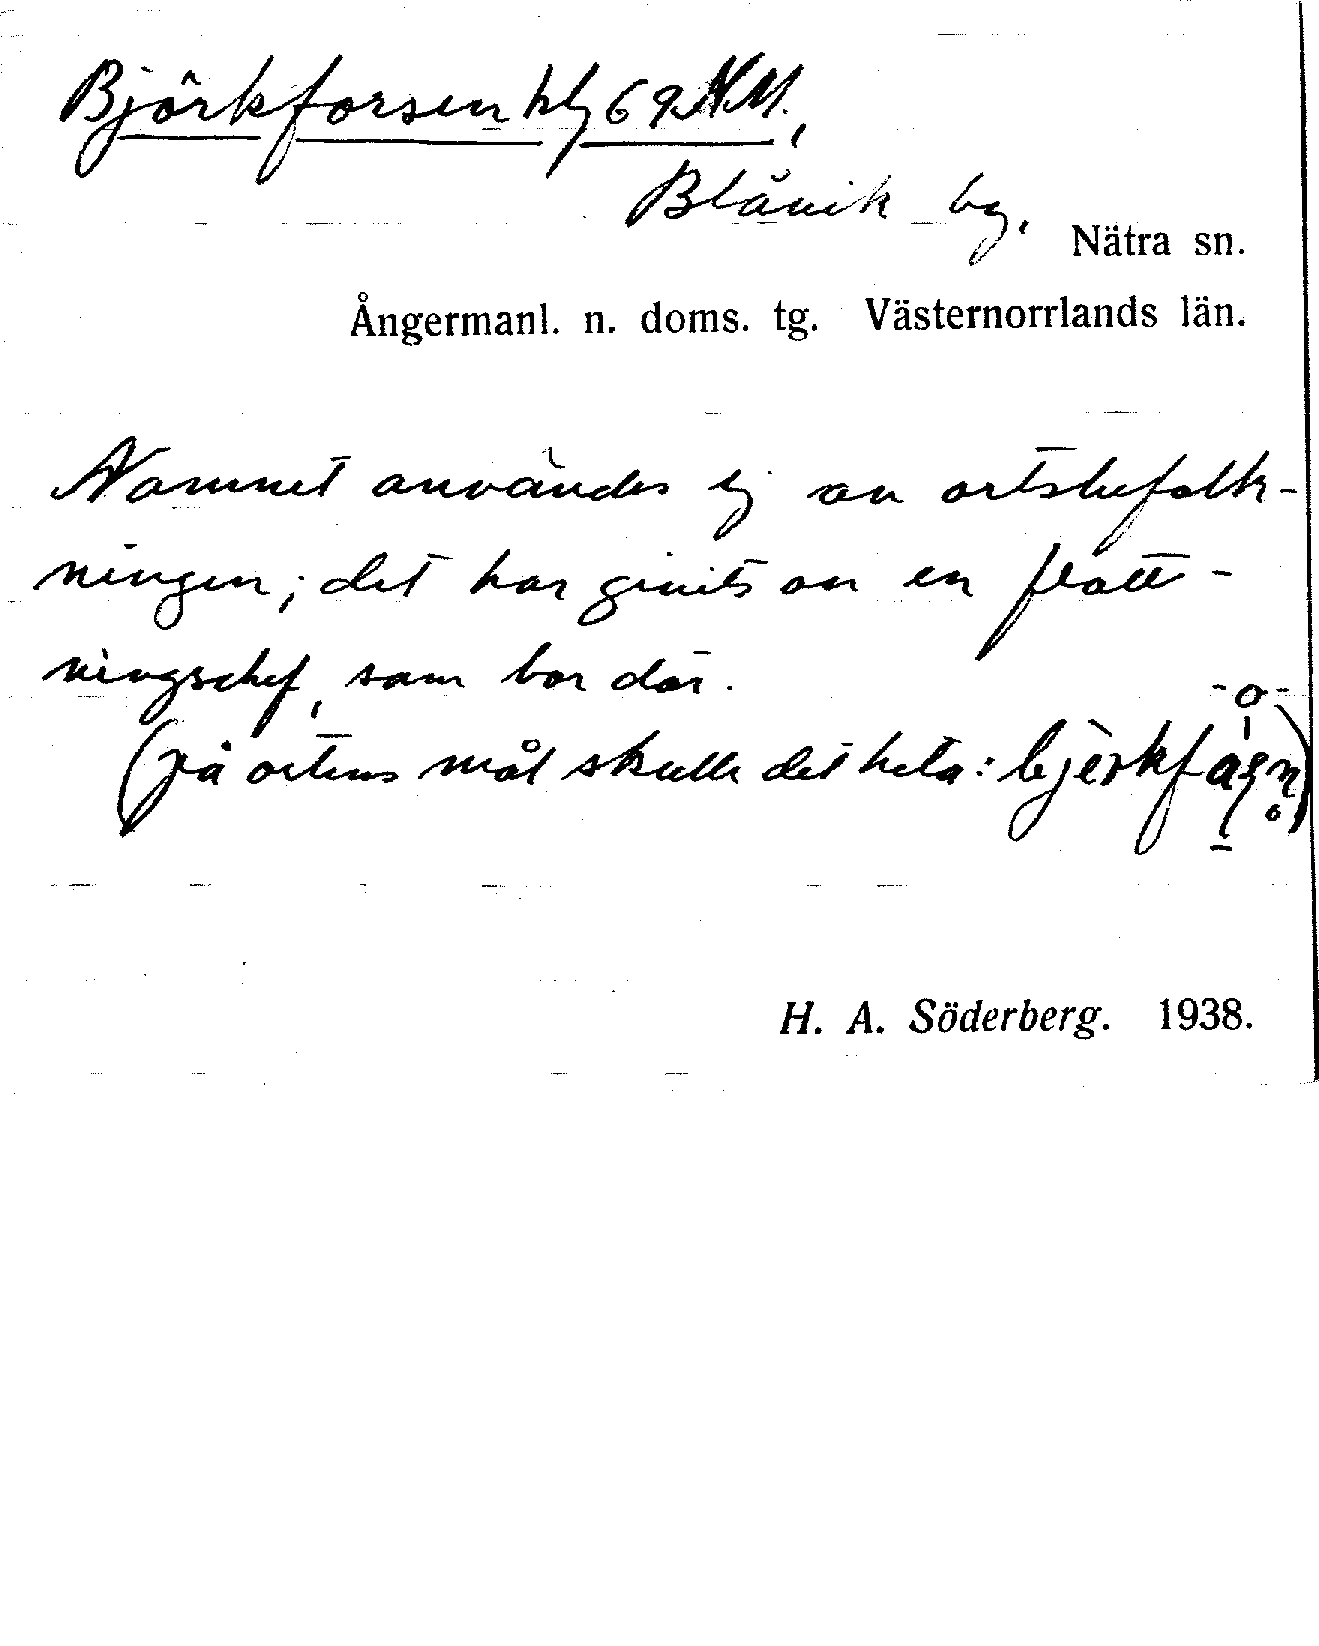 Björkforsen hlg 69 N.M.,
Blåvik by. Nätra sn.
Ångermanl. n. doms. tg. Västernorrlands län.
Namnet användes ej av ortsbefolk-
ningen; det har givits av en flott-
ningschef, som bor där.
-o-
(på ortens mål skulle det heta: bjèrkf
H. A. Söderberg. 1938.